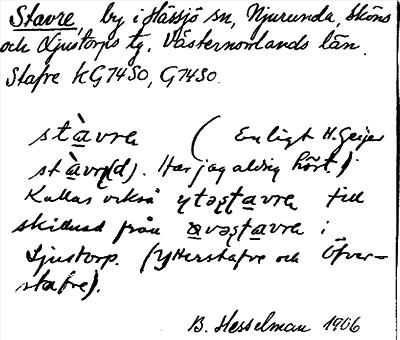 Stavre, by i Hässjö sn, Njurunda, Sköns
och Ljustorps tg, Västernorrlands län.
Stafre KG7450, G7450.
stàvra ( Enligt H. Geijer
stàvr(d). Har jag aldrig hört.)
Kallas också ytəstavra till
skillnad från avəstavra i
Ljustorp. (Ytterstafre och Öfver-
stafre).
B. Hesselman 1906